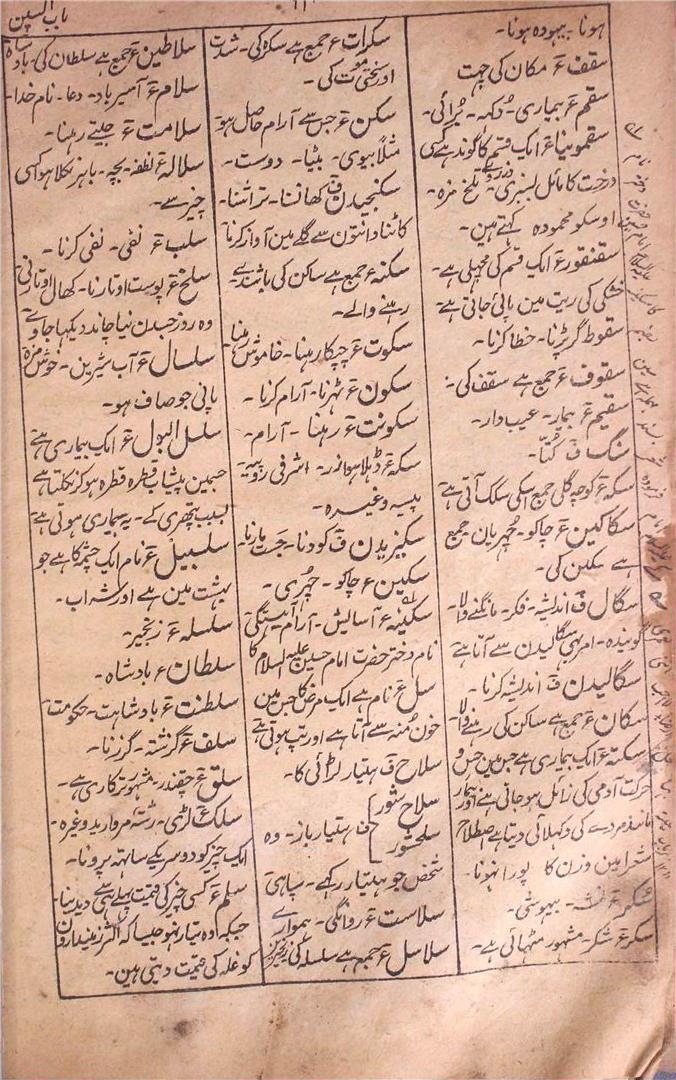 باب السین
ہونا۔ بیہودہ ہونا۔
سقف ع مکان کی چہت
سقم ع بیماری۔ دُکہہ۔ بُرائی۔
سقمونیا ع ایک قسم کا گوند ہے کسی
درخت کا مائل بسبزی و زردی۔ تلخ مزہ۔
اوسکو محمودہ کہتے ہین۔
سقنقور ع ایک قسم کی مچہلی ہے
خشکی کی ریت مین پائی جاتی ہے
سقوط گر پڑنا۔ خطا کرنا۔
سقوف ع جمع ہے سقف کی۔
سقیم ع بیمار۔ عیب دار۔
سگ ف کُتّا۔
سکہ ع کوچہ گلی جمع اسکی سکک آتی ہے
سکاکین ع چاکو۔ چُہریان جمع
ہے سکین کی۔
سگال ف اندیشہ۔ فکر۔ مانگنے والا۔
گویندہ۔ امر بہی سگالیدن سے آتا ہے
سگالیدن ف اندیشہ کرنا۔
سکان ع جمع ہے ساکن کی رہنے والا۔
سکتہ ع ایک بیماری ہے جسمین حس و
حرکت آدمی کی زائل ہو جاتی ہے اور بیمار
مانند مردے کی دکہلائی دیتا ہے اصطلاح
شعرا مین وزن کا پورا نہونا۔
سُکر ع نشہ۔ بیہوشی۔
سکر ع شکر۔ مشہور مٹہائی ہے۔
سکرات ع جمع ہے سکرۃ کی۔ شدت
اور سختی موت کی۔
سکن ع جس سے آرام حاصل ہو
مثلاً بیوی۔ بیٹا۔ دوست۔
سکنجیدن ف کہانسنا۔ تراشنا۔
کاٹنا دانتون سے گلے مین آواز کرنا
سکنہ ع جمع ہے ساکن کی باشندے
رہنے والے۔
سکوت ع چپکا رہنا۔ خاموش رہنا
سکون ع ٹہرنا۔ آرام کرنا۔
سکونت ع رہنا۔ آرام۔
سکہ ع ڈہلا ہوا زر۔ اشرفی روپیہ
پیسہ وغیرہ۔
سکیزیدن ف کودنا۔ جست مارنا۔
سکین ع چاکو۔ چُہری۔
سکینہ ع آسایش۔ آرام آہستگی
نام دختر حضرت امام حسین علیہ السلام کا
سل ع نام ہے ایک مرض کا جس مین
خون مُنہ سے آتا ہے اور تپ ہوتی ہے
سلاح ف ہتیار لڑائی کا۔
سلاح شور
سلحشور
ف ہتیار باز۔ وہ
شخص جو ہتیار رکہے۔ سپاہی
سلاست ع روانگی۔ ہمواری
سلاسل ع جمع ہے سلسلہ کی زنجیرین
سلاطین ع جمع ہے سلطان کی۔ بادشاہ
سلام ع آسیرباد۔ دعا۔ نام خدا۔
سلامت ع جیتے رہنا۔
سلالہ ع نطفہ۔ بچہ۔ باہر نکلا ہوا کسی
چیز سے۔
سلب ع نفی۔ نفی کرنا۔
سلخ ع پوست اوتارنا۔ کہال اوتارنی
وہ روز جسدن نیا چاند دیکہا جاوے
سلسال ع آب شیرین۔ خوش مزہ
پانی جو صاف ہو۔
سلسل البول ع ایک بیماری ہے
جسمین پیشاب قطرہ قطرہ ہو کر نکلتا ہے
بسبب پتھری کے۔ یہ بیماری ہوتی ہے
سلسبیل ع نام ایک چشمہ کا ہے جو
بہشت مین ہے اور شراب۔
سلسلہ ع زنجیر۔
سلطان ع بادشاہ۔
سلطنت ع بادشاہت۔ حکومت
سلف ع گزشتہ۔ گزرنا۔
سلق ع چقندر۔ مشہور ترکاری ہے۔
سلک ع لڑی۔ رشتہ مروارید وغیرہ۔
ایک چیز کو دوسریکے ساتہہ پرونا۔
سلم ع کسی چیز کی قیمت پہلے ہی سے دیدینا۔
جبکہ وہ تیار نہو جیسا کہ اکثر زمیندارون
کو غلہ کی قیمت دیتی ہین۔